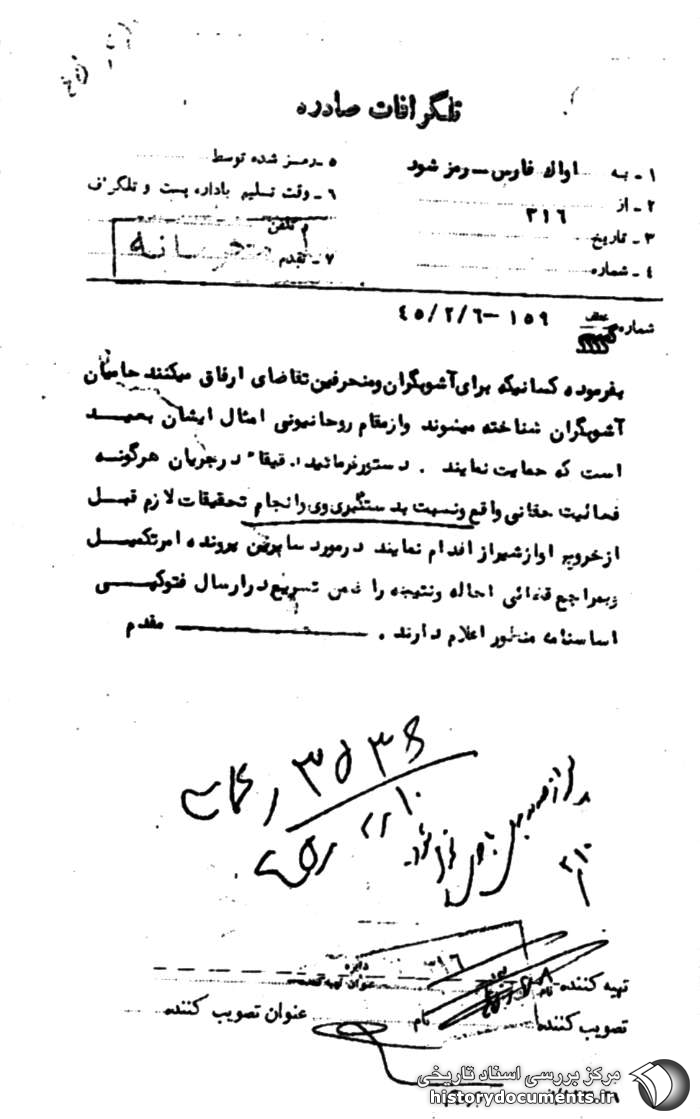 تلگرافات صادره
۱ - به اواک فارس – رمز شود
۲ - از ۳۱۶
۳ - تاریخ
۴ - شماره
۵ - رمز شده توسط
۶ - وقت تسلیم باداره پست و تلگراف و تلفن
۷ - تقدم
محرمانه
شماره عطف ۱۵۹ – ۴۵/۲/۶
بفرموده کسانیکه برای آشوبگران و منحرفین تقاضای ارفاق میکنند حامیان
آشوبگران شناخته میشوند و از مقام روحانیونی امثال ایشان بعیـــد
است که حمایت نمایند . دستور فرمائید دقیقا" در جریان هرگونـــه
فعالیت حقانی واقع و نسبت بدستگیری وی و انجام تحقیقات لازم قبــل
از خروج او از شیراز اقدام نمایند در مورد سایرین پرونده امر تکمیــل
و بمراجع قضائی احاله و نتیجه را ضمن تسریع در ارسال فتوکپـــی
اساسنامه منظور اعلام دارند . مقدم
۳۱۶
تهیه کننده نام
دایره
عنوان تهیه کننده
تصویب کننده نام
عنوان تصویب کننده
مرکز بررسی اسناد تاریخی
historydocuments.ir